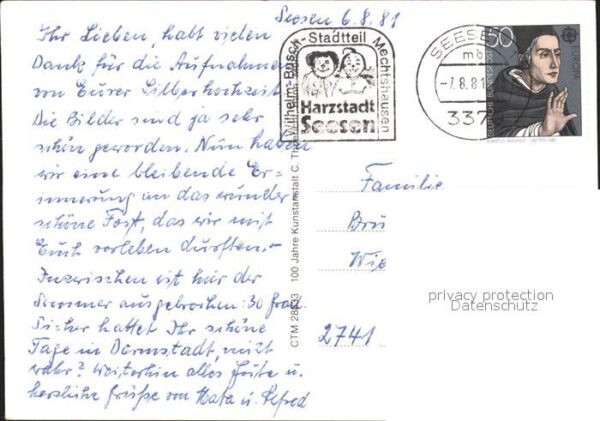 Seesen 6.8.81
Ihr Lieben, habt vielen
Dank für die Aufnahmen
von Eurer Silberhochzeit
Die Bilder sind ja sehr
schön geworden. Nun haben
wir eine bleibende Er=
innerung an das wunder
schöne Fest, das wir mit
Euch verleben durften.-
Inzwischen ist hier der
Sommer ausgebrochen: 30 Grad
Sicher hattet Ihr schöne
Tage in Darmstadt, nicht
wahr? Weiterhin alles Gute u.
herzliche Grüße von u. Alfred
CTM 100 Jahre Kunstanstalt C.
Wilhelm-Busch-Stadtteil Mechtshausen
Harzstadt
Seesen
SEESE
mb
-7.8.81
337
50
EUROPA
DEUTSCHE BUNDESPOST
Familie
Bru
Wie
2741
privacy protection
Datenschutz